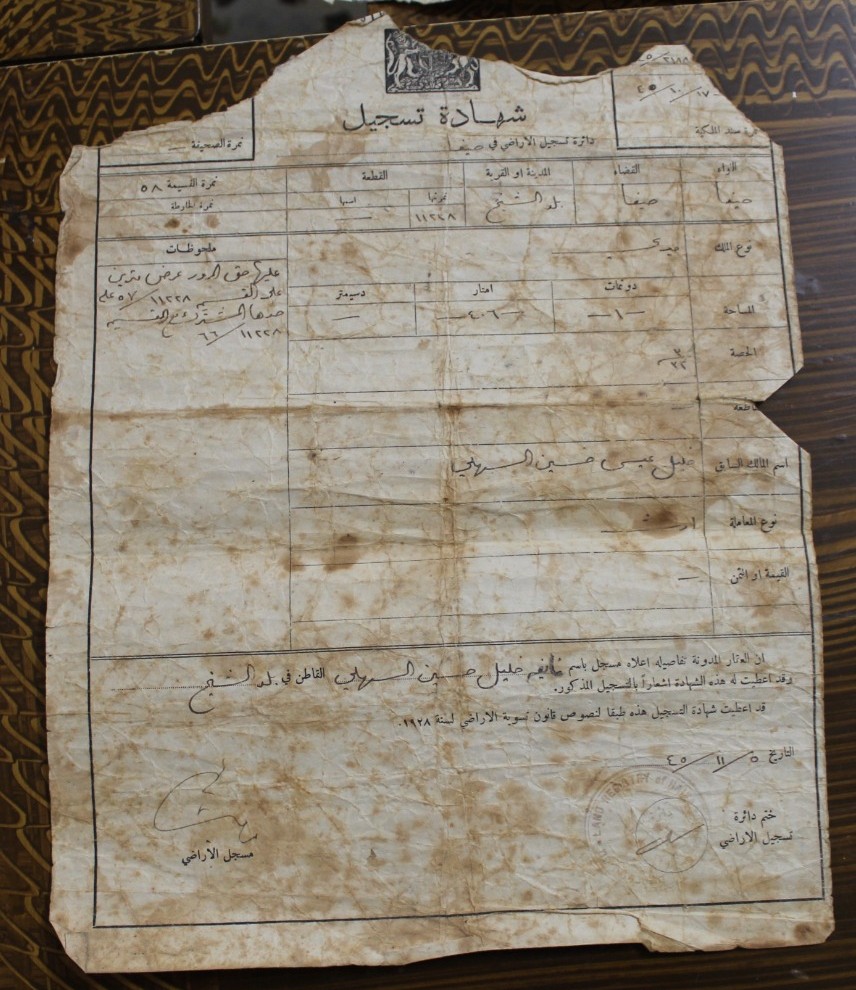 ٤٥/١٠/١٧
شهادة تسجيل
دائرة تسجيل الاراضي في حيفا
نمرة سند الملكية
نمرة الصحيفة —
اللواء
القضاء
المدينة او القرية
القطعة
نمرة القسيمة ٥٨
حيفا
حيفا
بلد الشيخ
نمرتها
اسمها
١١٢٢٨
—
نمرة الخارطة
نوع الملك
ملحوظات
عليها حق المرور عرض مترين
على القسيمة ١١٢٢٨/٥٧ على
حدها المشترك مع القسيمة
١١٢٢٨/٦٦
المساحة
دونمات
امتار
دسيمتر
—١—
—٤٠٦—
—
الحصة
٣/٣٢
—
اسم المالك السابق
خليل عيسى حسين السهلي
نوع المعاملة
ارث
القيمة او الثمن
—
ان العقار المدونة تفاصيله اعلاه مسجل باسم خليل حسين السهلي القاطن في بلد الشيخ
وقد اعطيت له هذه الشهادة اشعاراً بالتسجيل المذكور.
قد اعطيت شهادة التسجيل هذه طبقا لنصوص قانون تسوية الاراضي لسنة ١٩٢٨.
التاريخ ٤٥/١١/٥
LAND REGISTRY
ختم دائرة
تسجيل الاراضي
مسجل الأراضي